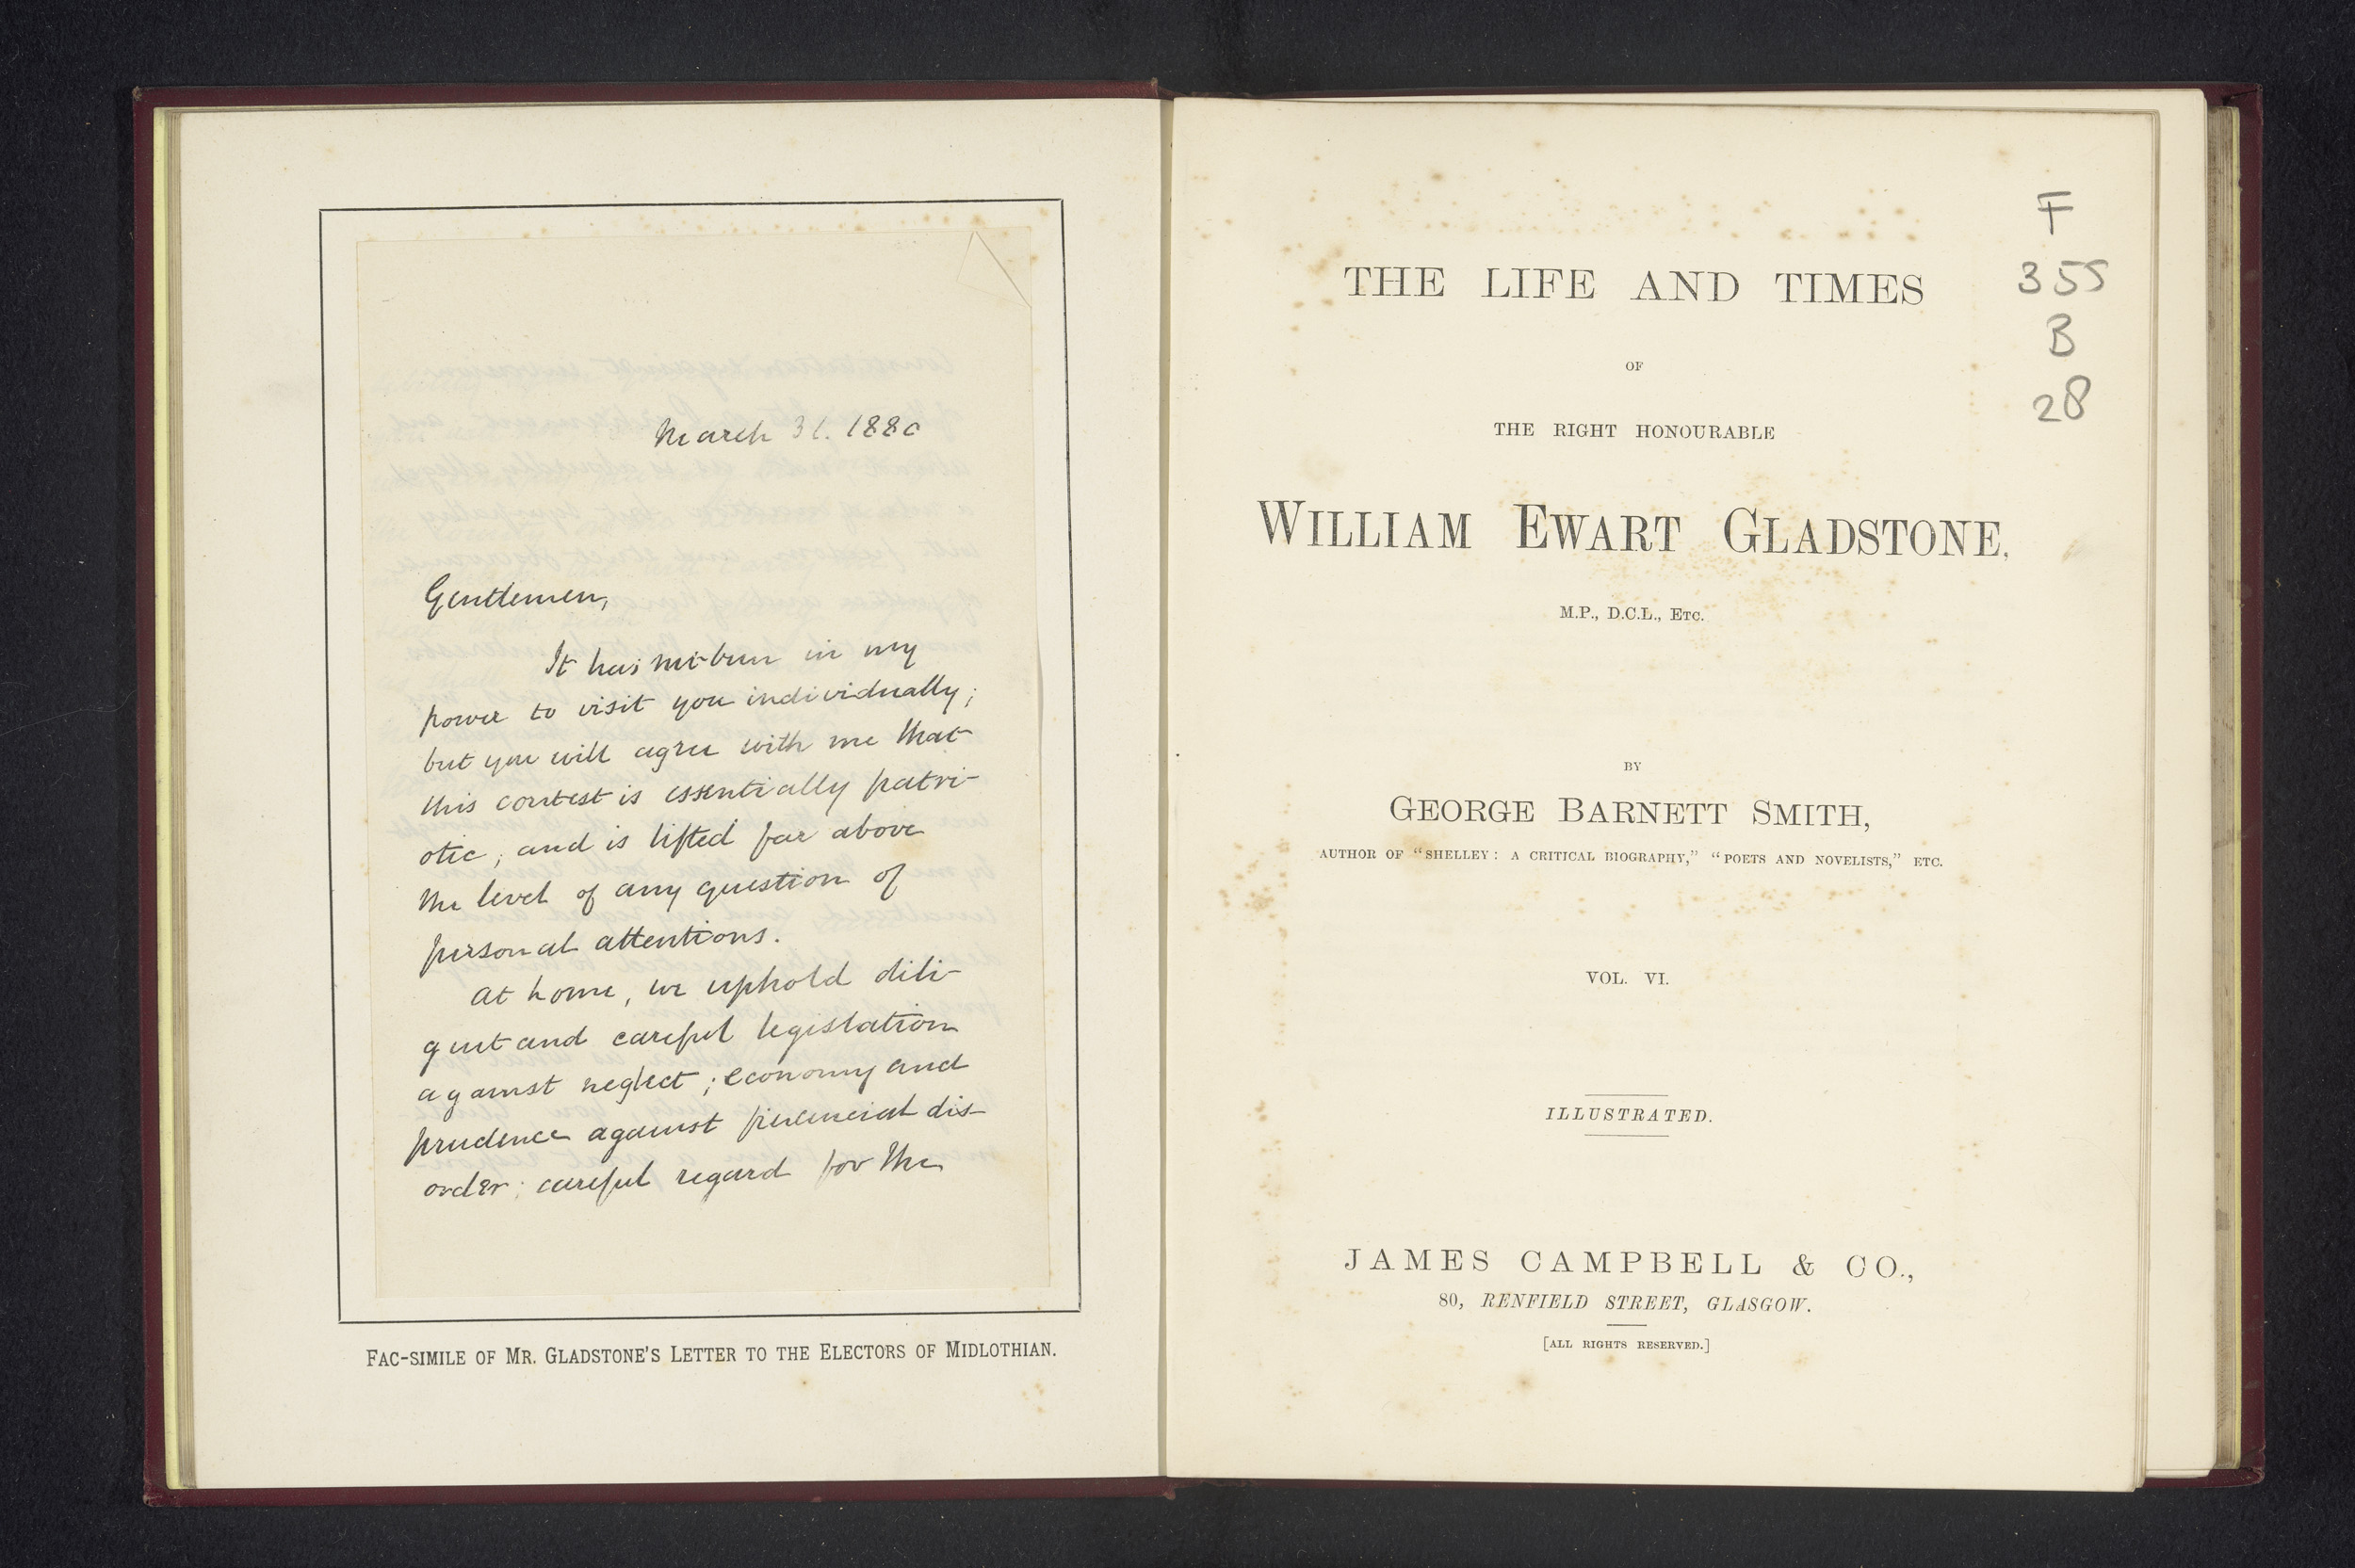 March 31. 1880
Gentlemen,
It has not been in my
power to visit you individually;
but you will agree with me that
this contest is essentially patri-
otic, and is lifted far above
the level of any question of
personal attentions.
At home, we uphold dili-
gent and careful legislation
against neglect; economy and
prudence against financial dis-
order; careful regard for the
FAC-SIMILE OF MR. GLADSTONE'S LETTER TO THE ELECTORS OF MIDLOTHIAN.
THE LIFE AND TIMES
OF
THE RIGHT HONOURABLE
WILLIAM EWART GLADSTONE,
M.P., D.C.L., ETC.
BY
GEORGE BARNETT SMITH,
AUTHOR OF "SHELLEY: A CRITICAL BIOGRAPHY," "POETS AND NOVELISTS," ETC.
VOL. VI.
ILLUSTRATED.
JAMES CAMPBELL & CO.,
80, RENFIELD STREET, GLASGOW.
[ALL RIGHTS RESERVED.]
F
355
B
28